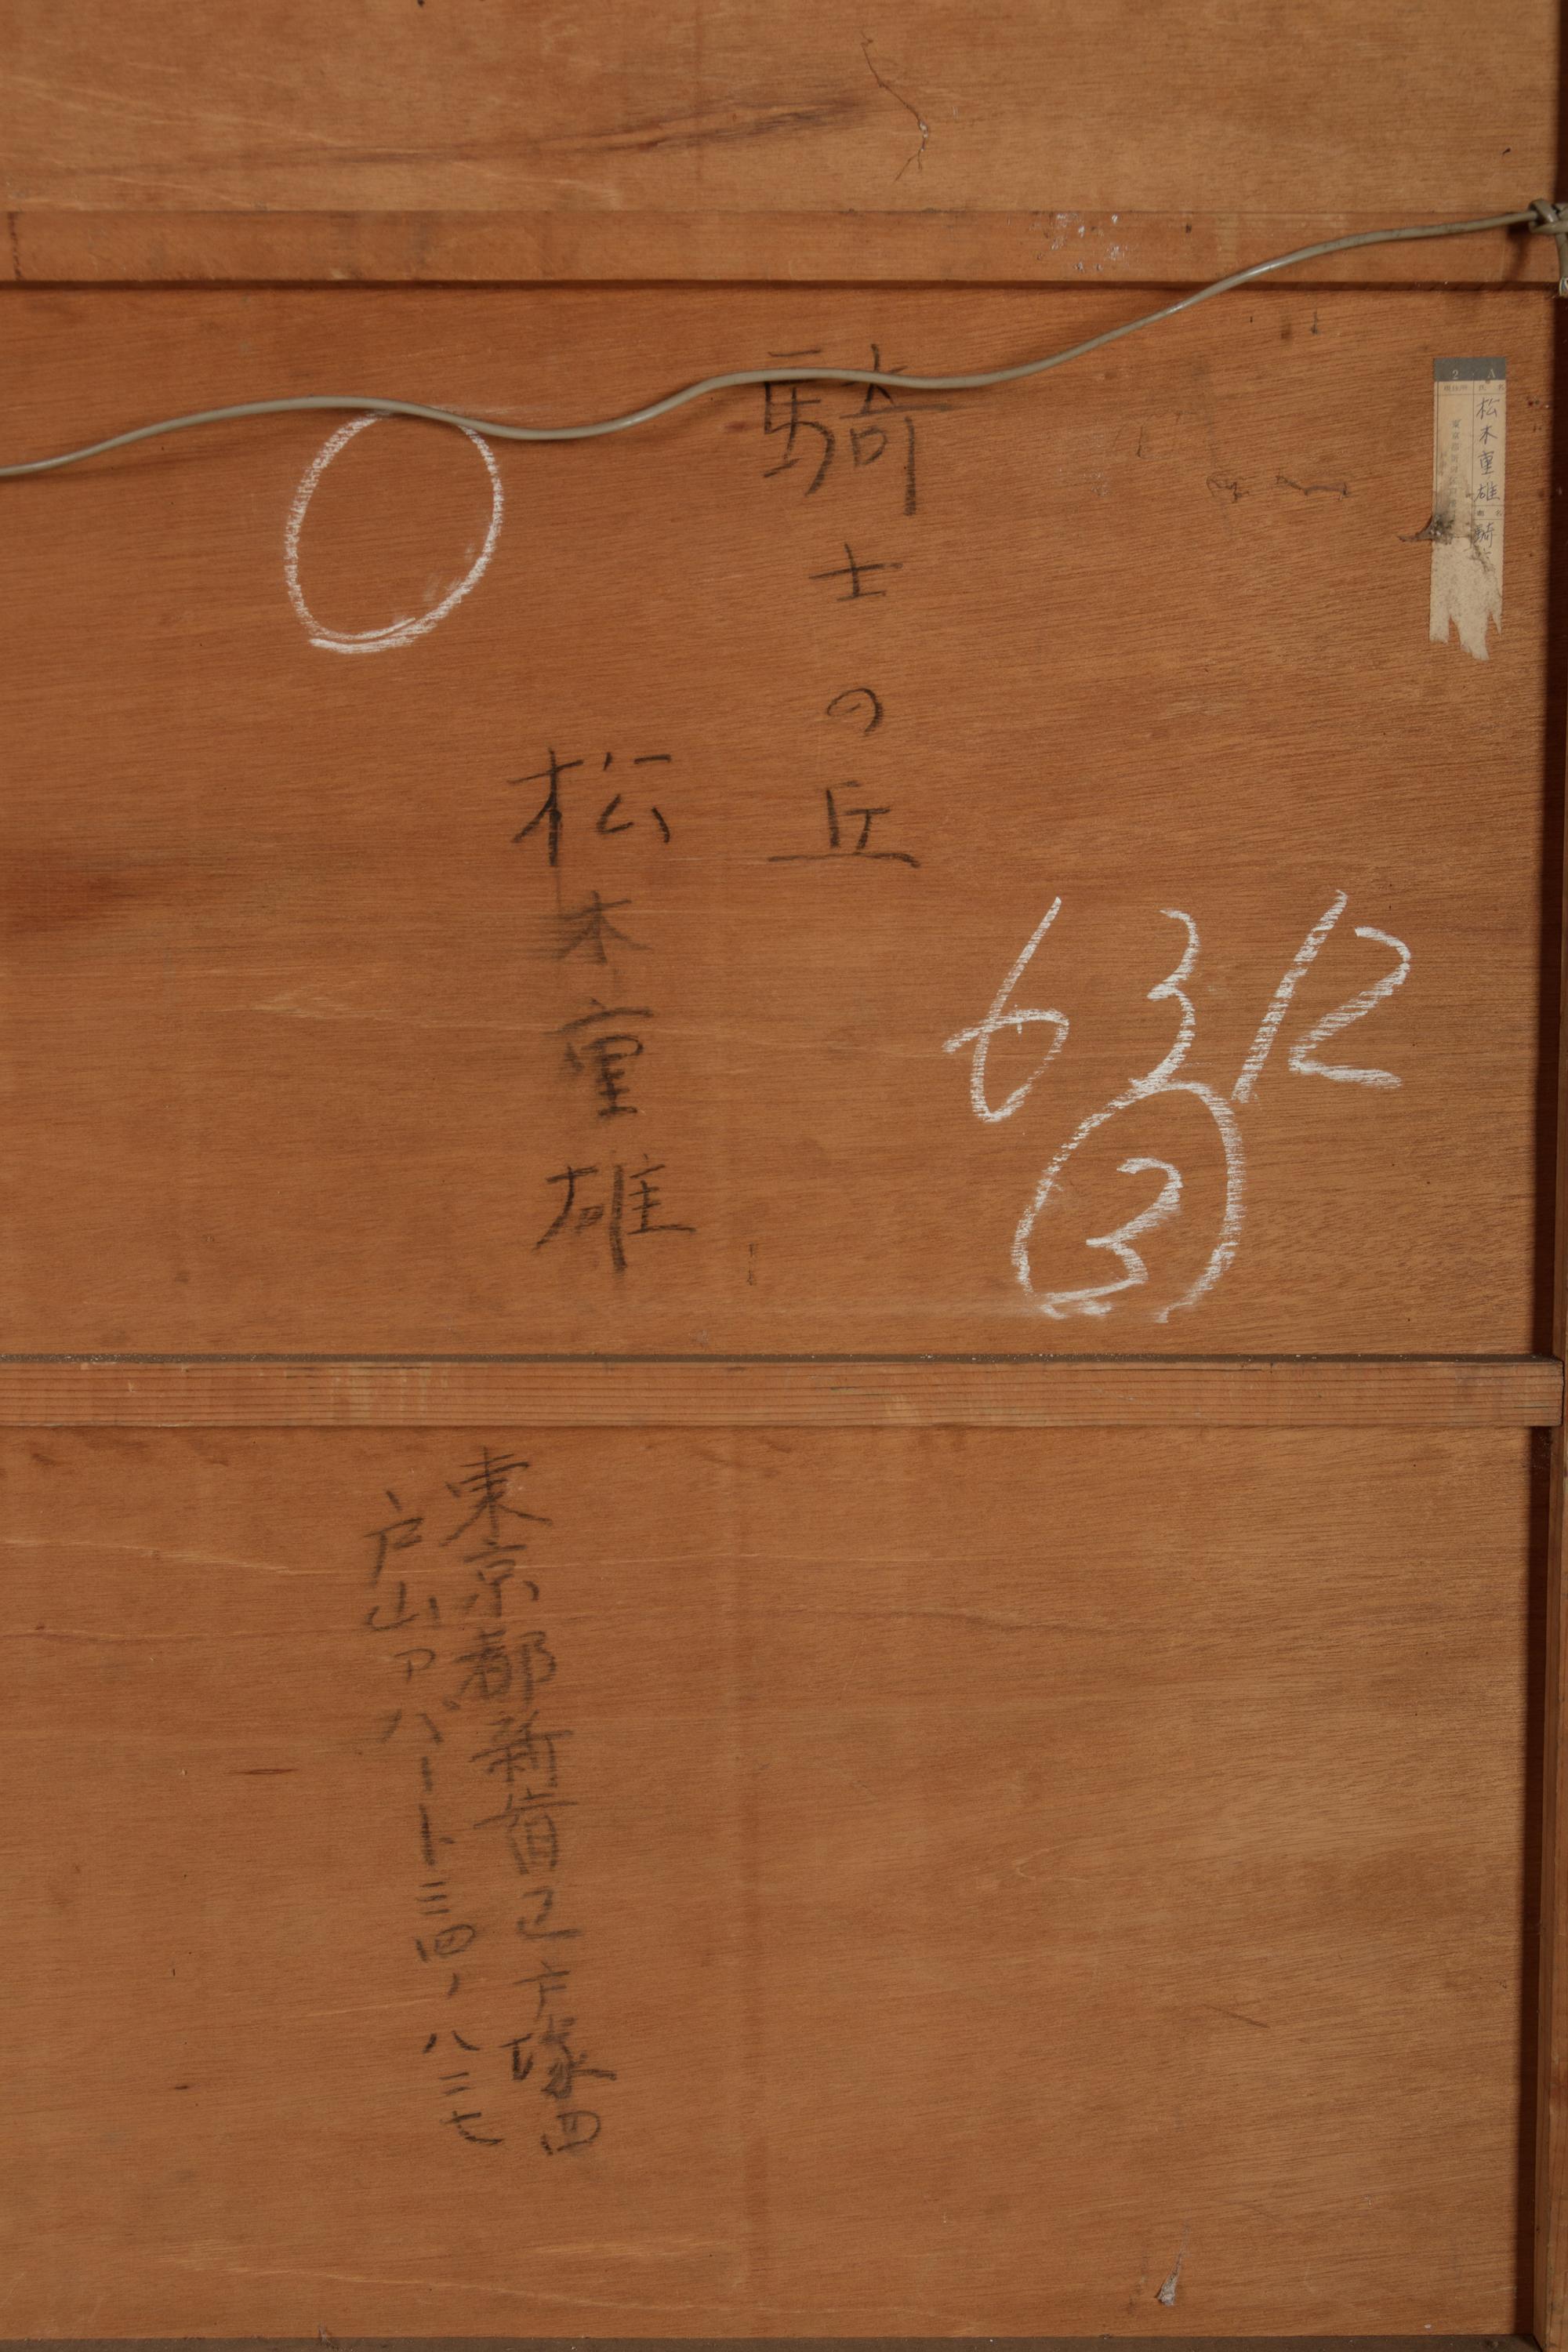 2 A
松木重雄
騎
騎士の丘
松木重雄
63R
3
東京都新宿区戸塚四
戸山アパート三四ノ八二七